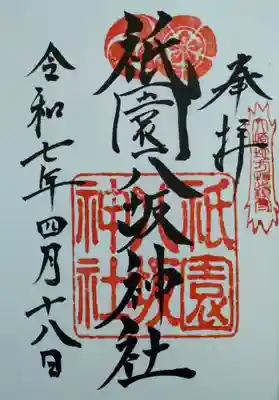 奉拝
祇園八坂神社
令和七年四月十八日
祇園
八坂
神社